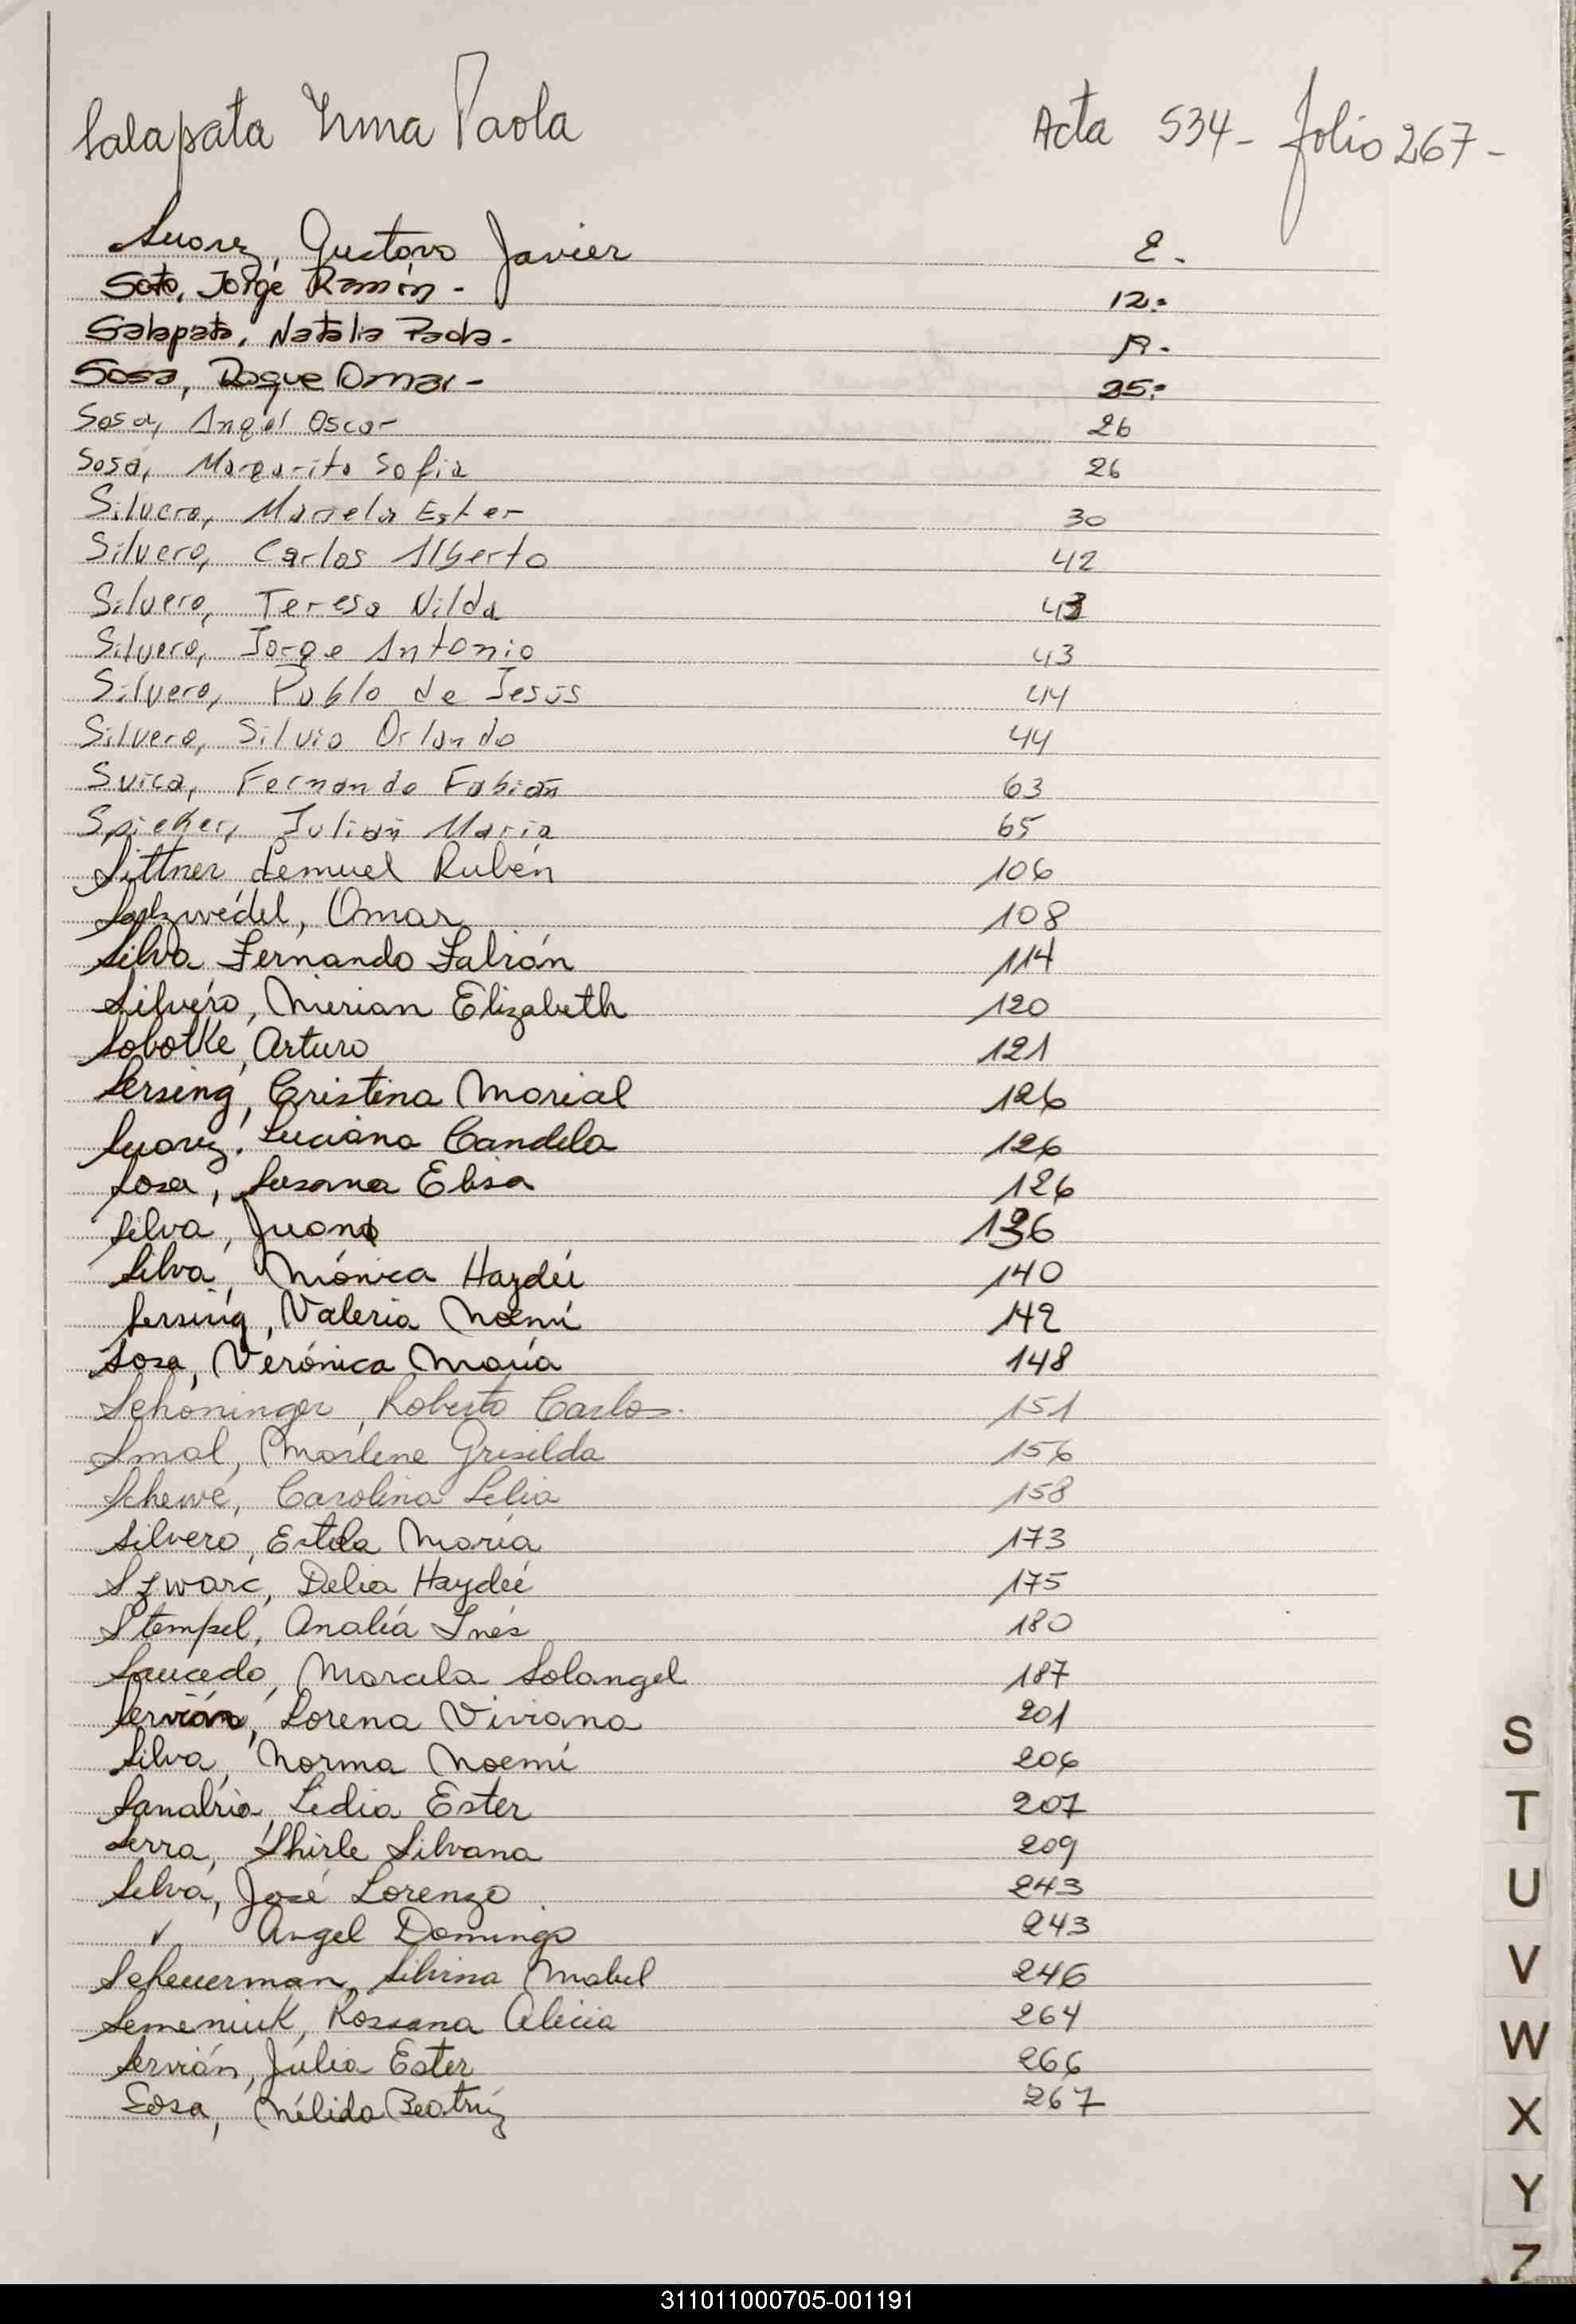 Salapata Irma Paola Acta 534- folio 267-
Suarez, Gustavo Javier 2.
Soto, Jorge Ramón - 12:
Salapata, Natalia Paola.
Sosa, Roque Omar - 25:
Sosa, Angel Oscar 26
Sosa, Margarita Sofia 26
Silvero, Marcela Ester 30
Silvero, Carlos Alberto 42
Silvero, Teresa Nilda 43
Silvero, Jorge Antonio 43
Silvero, Pablo de Jesús 44
Silvero, Silvio Orlando 44
Svica, Fernando Fabián 63
Spieker, Julián María 65
Sittner Lemuel Rubén 106
Salzwedel, Omar 108
Silva Fernando Fabián 114
Silvero, Mirian Elizabeth 120
Sobotke, Arturo 121
Sersing, Cristina Marial 126
Suarez, Luciana Candela 126
Sosa, Susana Elisa 126
Silva, Juana 136
Silva, Mónica Haydeé 140
Sersing, Valeria Noemí 142
Sosa, Verónica María 148
Schoninger, Roberto Carlos. 151
Smal, Marlene Griselda 156
Schewe, Carolina Lelia 158
Silvero, Estela María 173
Szwarc, Delia Haydeé 175
Stempel, Analía Inés 180
Saucedo, Marcela Solangel 187
Servián, Lorena Viviana 201
Silva, Norma Noemí 206
Sanabria, Lidia Ester 207
Serra, Shirle Silvana 209
Silva, José Lorenzo 243
✓ Angel Domingo 243
Scheuerman, Silvina Mabel 246
Semeniuk, Rossana Alicia 264
Servián, Julia Ester 266
Sosa, Nélida Beatríz 267
S
T
U
V
W
X
Y
Z
311011000705-001191